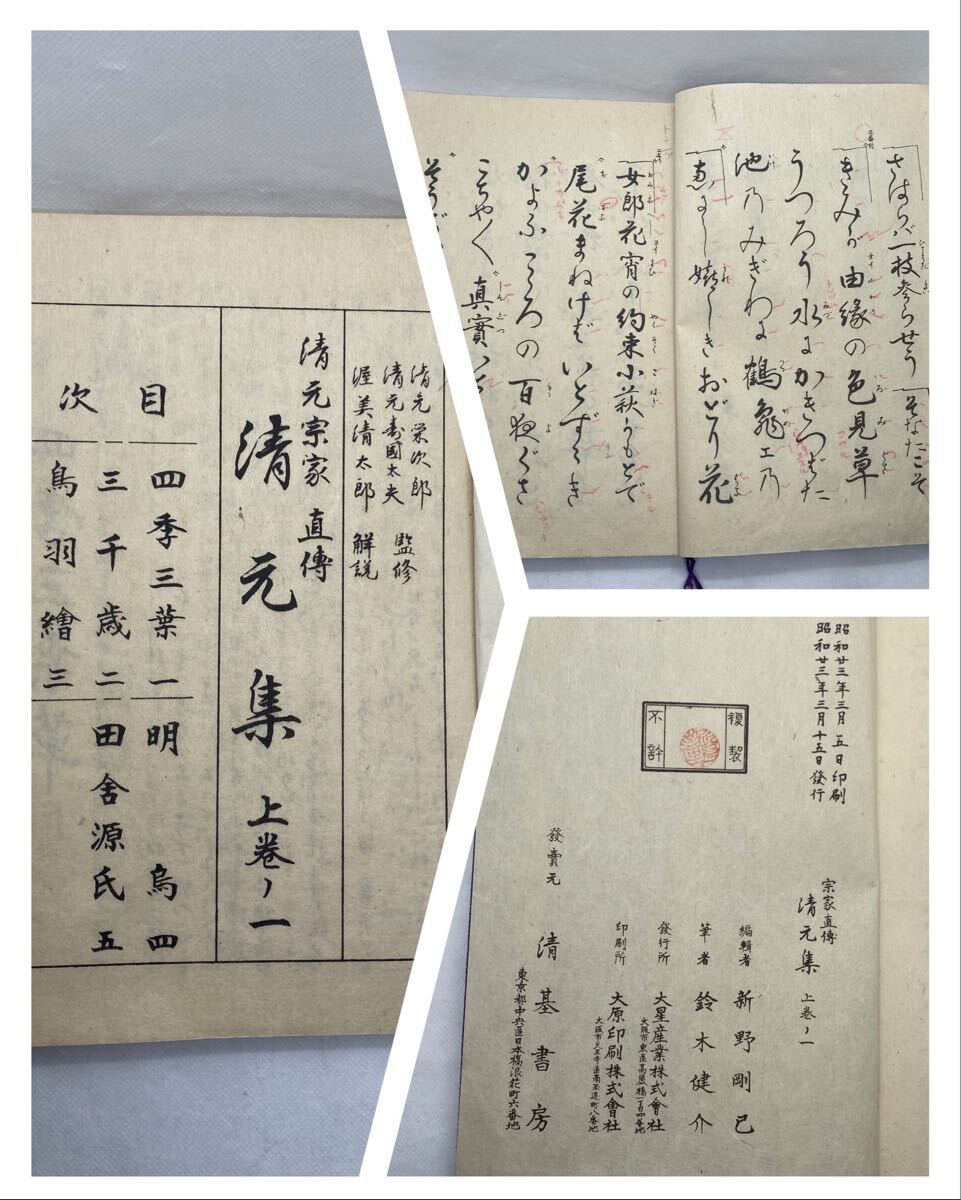 清元栄次郎
清元寿國太夫 監修
渥美清太郎 解説
清元宗家 直傳
清元集 上巻ノ一
目次
四季三葉 一
三千歳 二
鳥羽繪 三
明烏 四
田舎源氏 五
さはらば一枝参らせう そなたこそ
きみが由縁の色見草
うつろう水にかきつばた
池乃みぎわに鶴亀エ乃
しきおどり花
女郎花宵の約束小萩がもとで
尾花まねけばいとすゝき
かよふこゝろの百夜ぐさ
真實
昭和廿三年三月五日印刷
昭和廿三年三月十五日發行
複製
不許
宗家直傳
清元集 上巻ノ一
編輯者 新野剛已
筆者 鈴木健介
發行所 大星産業株式會社
大阪市東區高麗橋一丁目四番地
印刷所 大原印刷株式會社
發賣元 清基書房
東京都中央區日本橋浪花町六番地